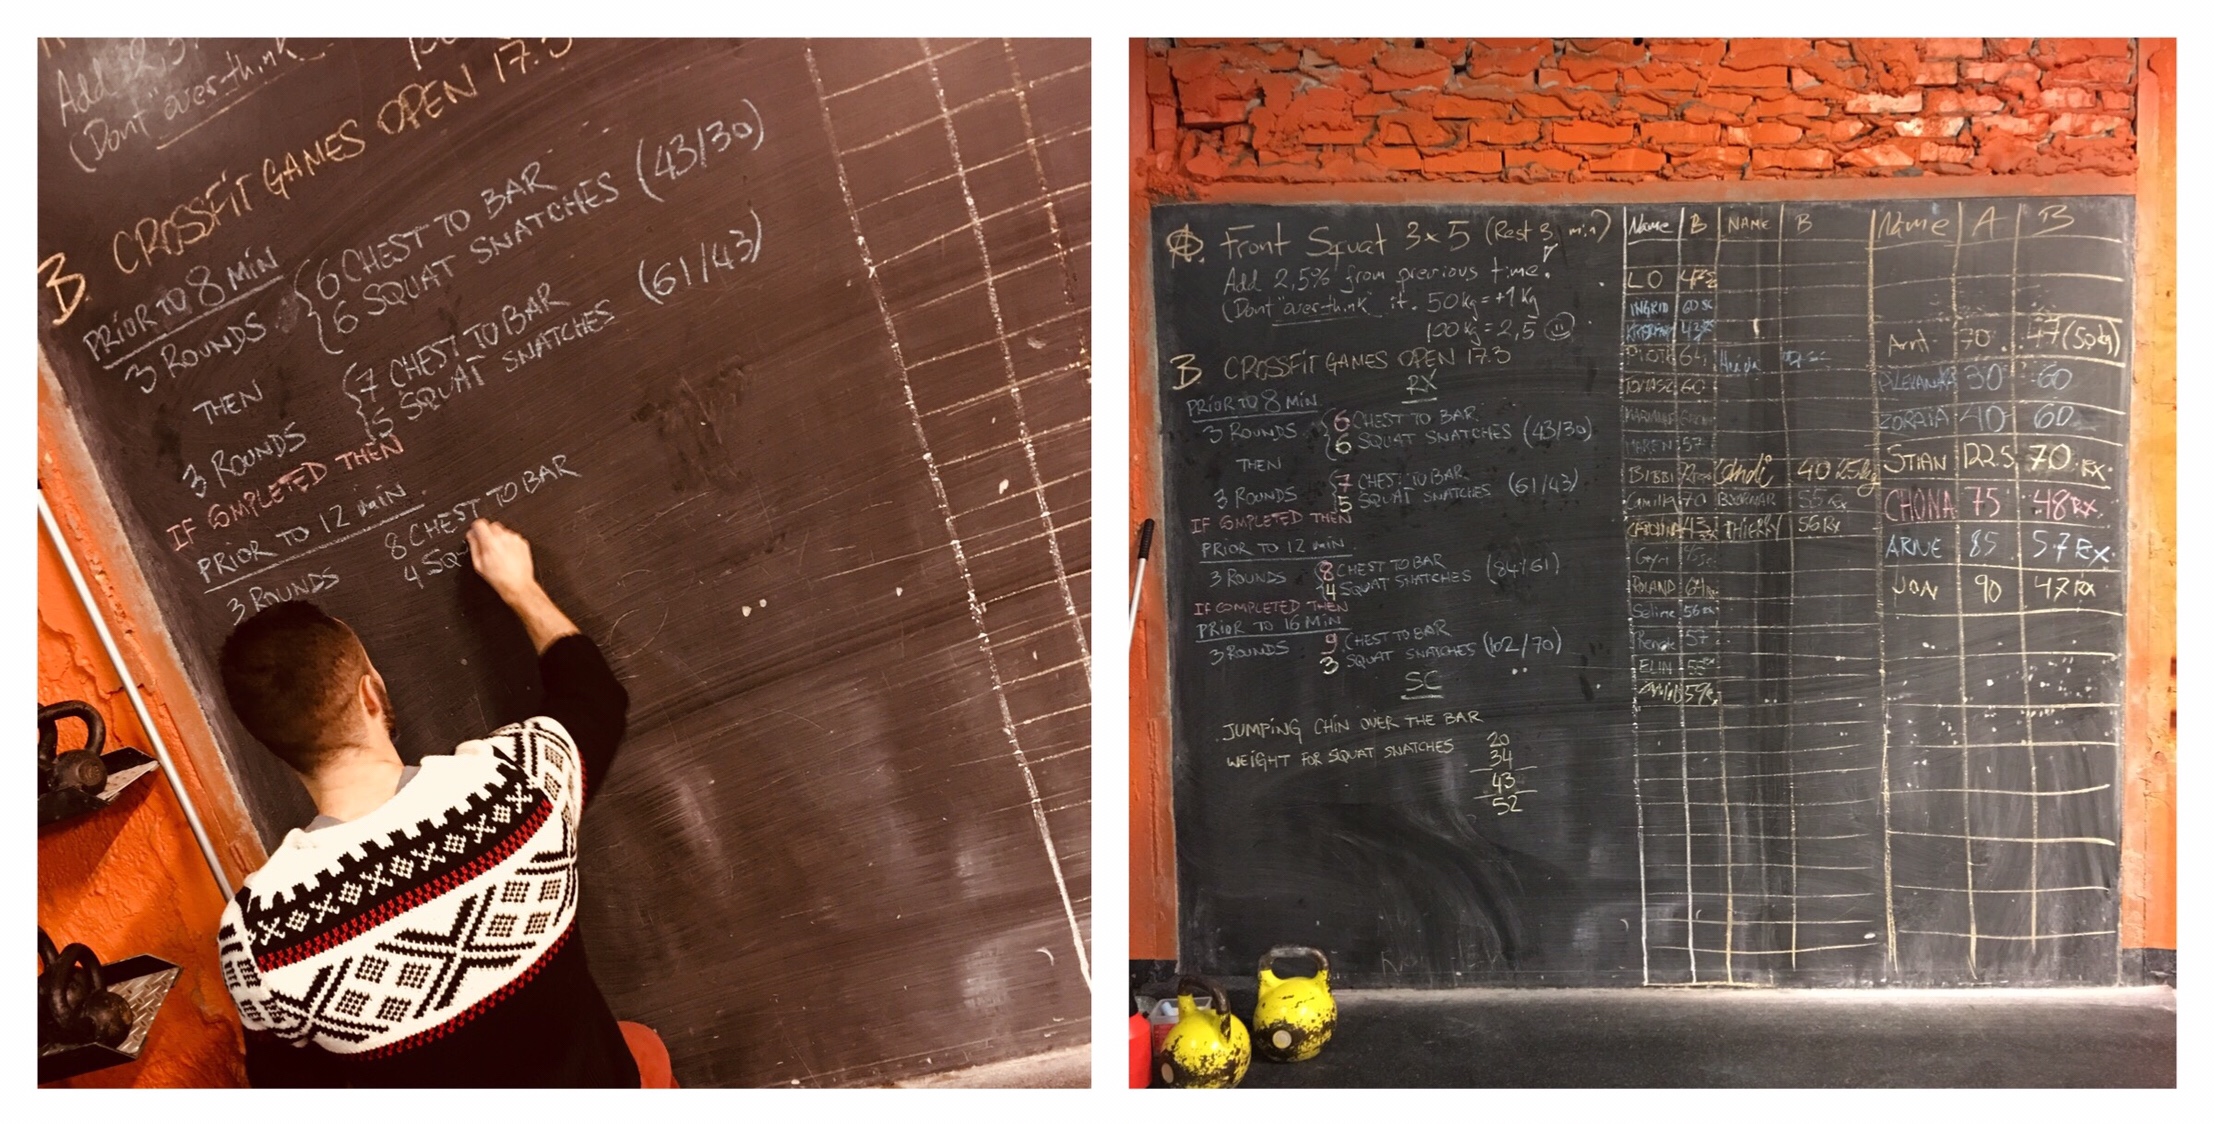 Add 2,5
(Dont "over-think"
B. CROSSFIT GAMES OPEN 17.3
PRIOR TO 8 MIN
3 ROUNDS { 6 CHEST TO BAR
6 SQUAT SNATCHES (43/30)
THEN
3 ROUNDS { 7 CHEST TO BAR
5 SQUAT SNATCHES (61/43)
IF COMPLETED THEN
PRIOR TO 12 min
3 ROUNDS 8 CHEST TO BAR
4 SQU
A. Front Squat 3x5 (Rest 3 min)
Add 2,5% from previous time.
(Dont "over-think" it. 50kg = +1 kg
100 kg = 2,5 ☺
B CROSSFIT GAMES OPEN 17.3
RX
PRIOR TO 8 MIN
3 ROUNDS { 6 CHEST TO BAR
6 SQUAT SNATCHES (43/30)
THEN
3 ROUNDS { 7 CHEST TO BAR
5 SQUAT SNATCHES (61/43)
IF COMPLETED THEN
PRIOR TO 12 min
3 ROUNDS 8 CHEST TO BAR
4 SQUAT SNATCHES (84/61)
IF COMPLETED THEN
PRIOR TO 16 MIN
3 ROUNDS 9 CHEST TO BAR
3 SQUAT SNATCHES (102/70)
SC
JUMPING CHIN OVER THE BAR
WEIGHT FOR SQUAT SNATCHES 20
34
43
52
Name B NAME B
LO
INGRID 60
64
TOMASZ 60
MAREN 57
BIBBI Candi 40 25kg
Camilla 70 55 Rx
CAROLINA 43 THIERRY 56 Rx
ROLAND 64
Seline 56
57
ELIN 55
59
Name A B
Arnt 70 47 (50kg)
30 60
ZORAIA 40 60
STIAN 122.5 70 RX
CHONA 75 48 RX
ARNE 85 57 Rx
JON 90 47 RX